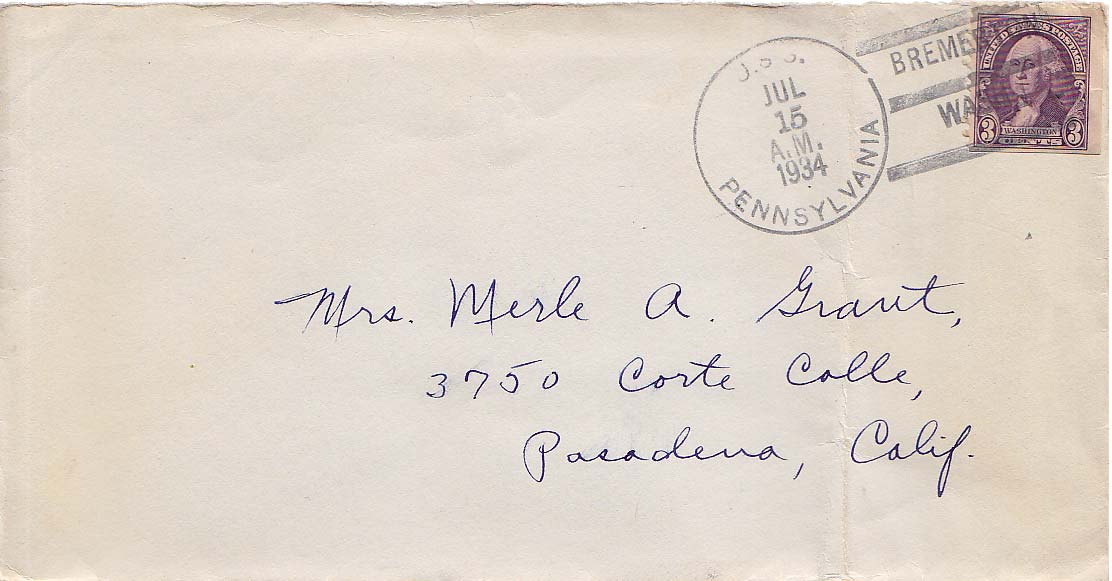 U.S.S.
JUL
15
A.M.
1934
PENNSYLVANIA
UNITED STATES POSTAGE
3 WASHINGTON 3
Mrs. Merle A. Grant,
3750 Corte Calle,
Pasadena, Calif.